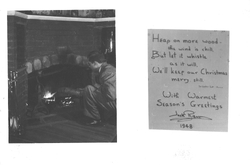 Heap on more wood -
the wind is chill
But let it whistle
as it will
We'll keep our Christmas
merry still
With Warmest
Season's Greetings
1948